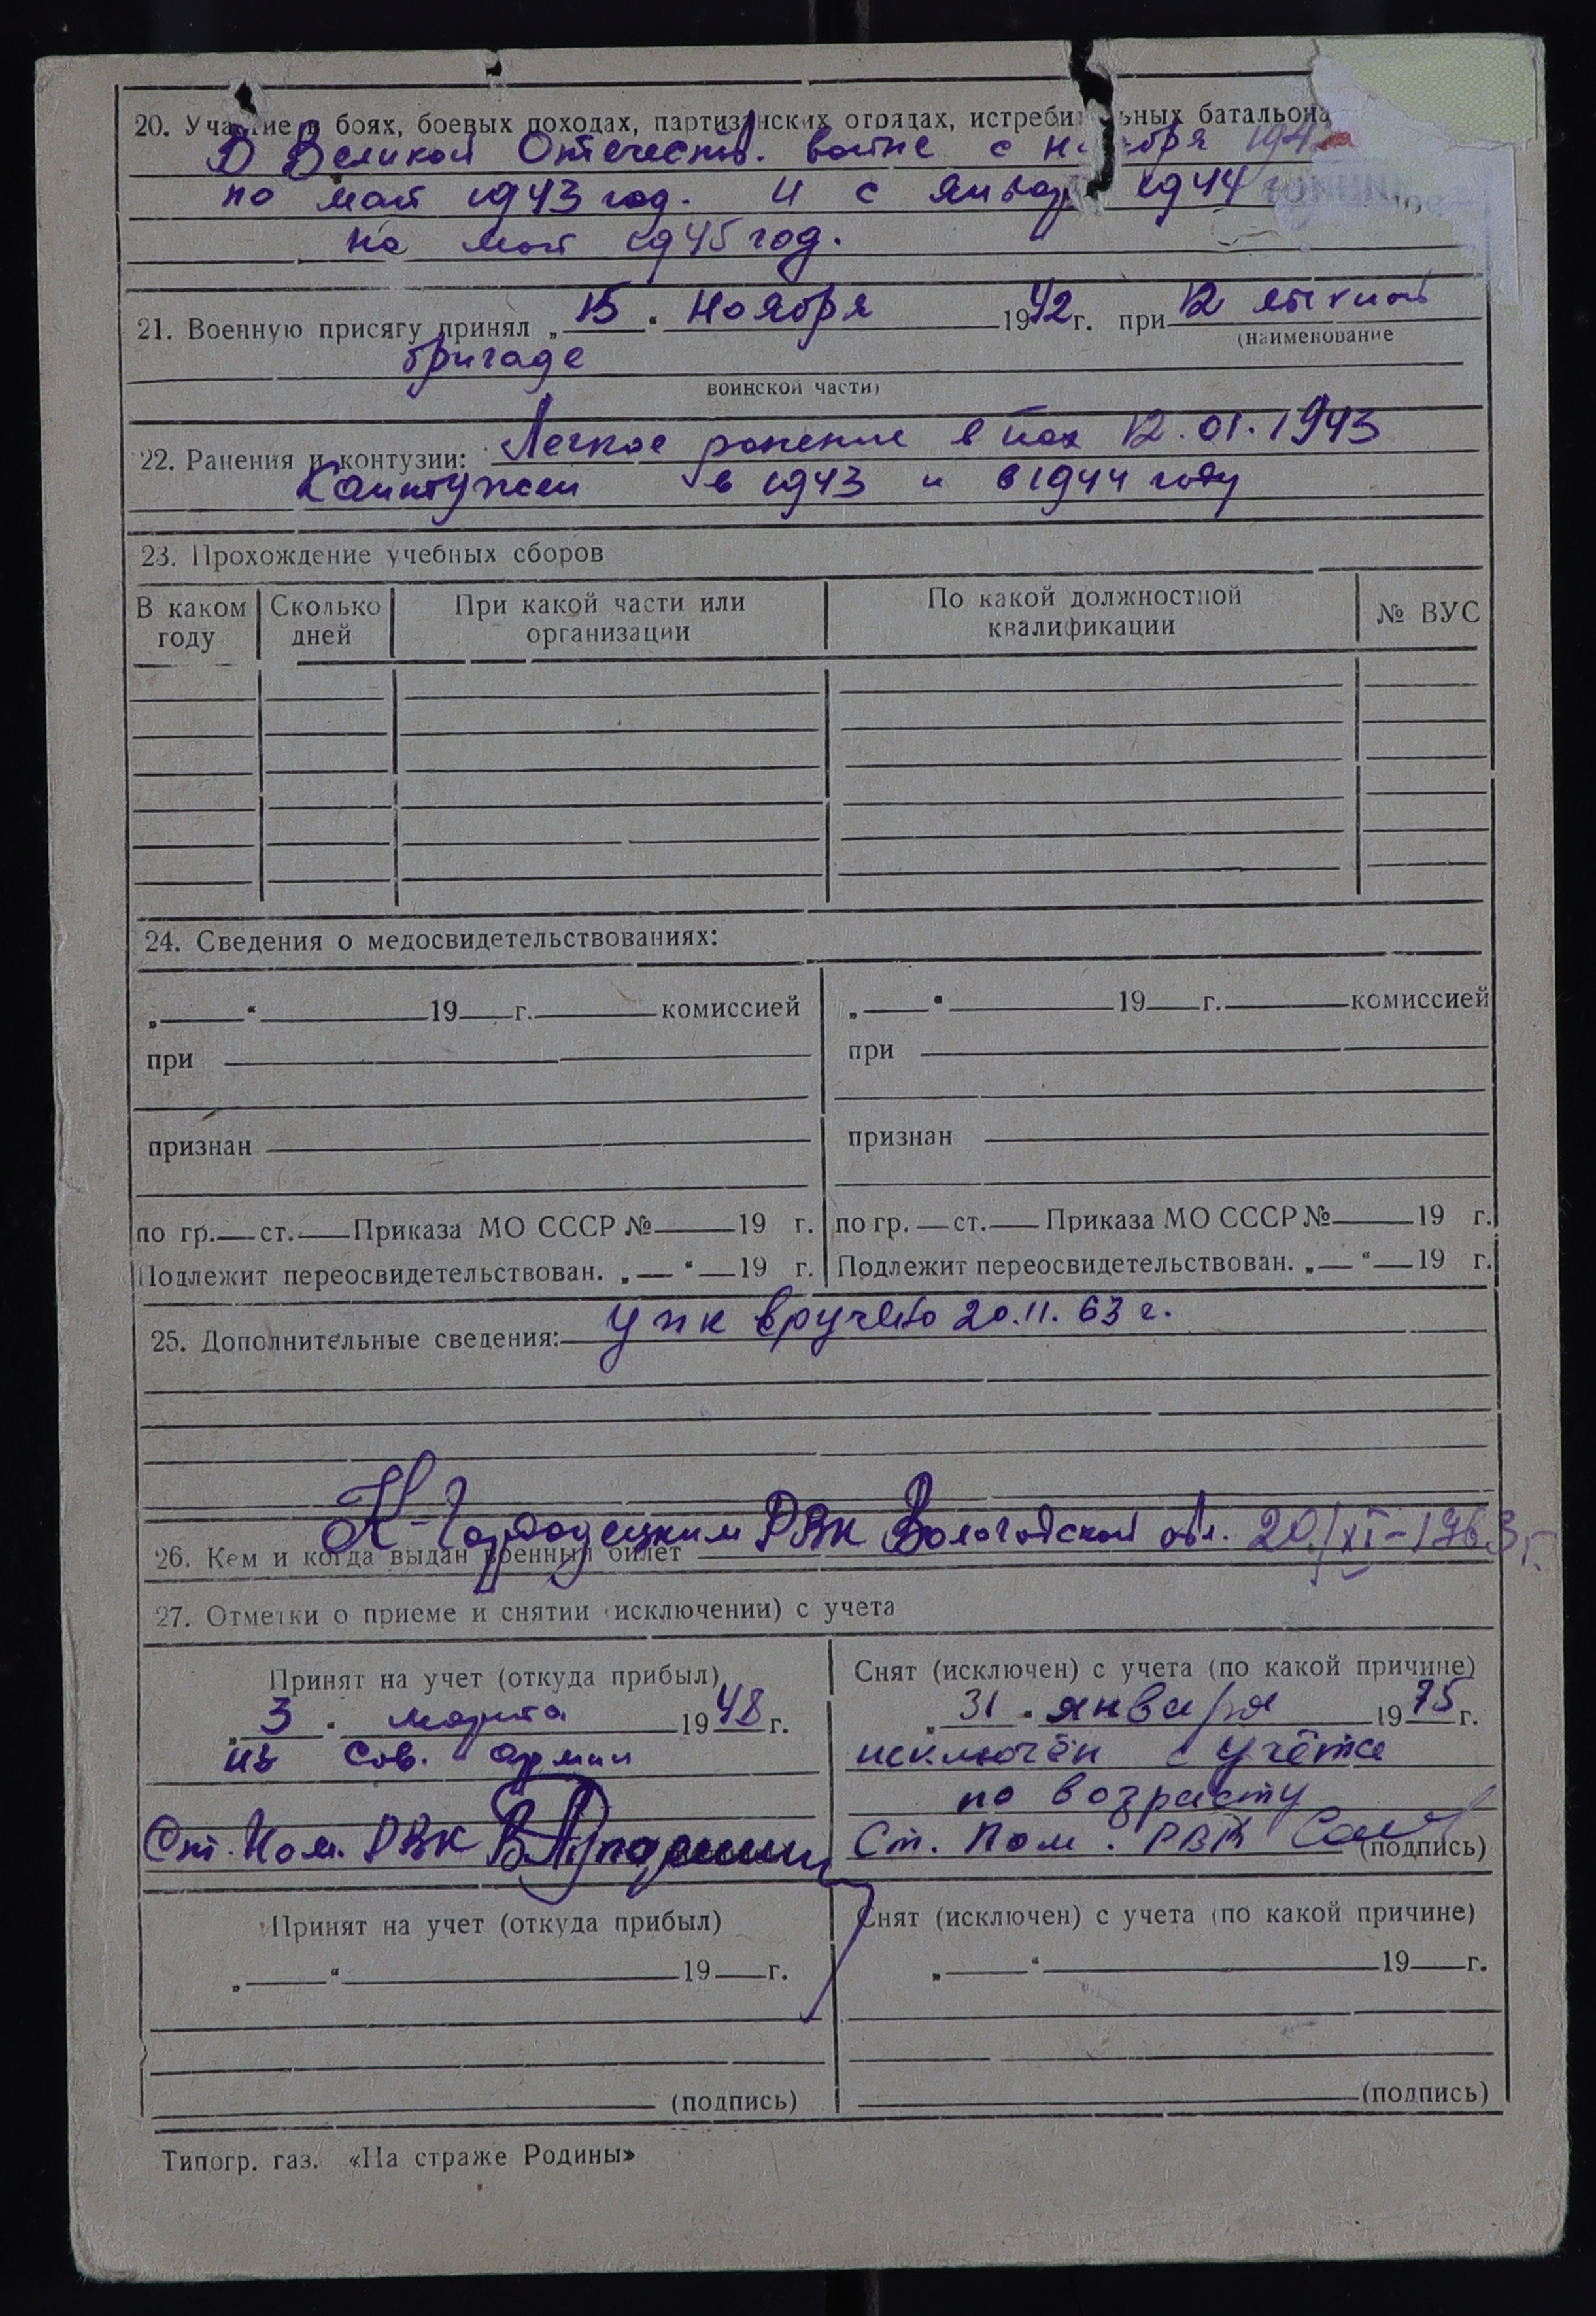 20. Участие в боях, боевых походах, партизанских отрядах, истребительных батальона
В Великой Отечеств. войне с ноября 194
по май 1943 год. и с январ 1944
по май 1945 год.
21. Военную присягу принял „15“ ноября 1942 г. при 12 лыжной
(наименование
бригаде
воинской части)
22. Ранения и контузии: Легкое ранение в пах 12.01.1943
Контужен в 1943 и в 1944 году
23. Прохождение учебных сборов
В каком году Сколько дней При какой части или организации По какой должностной квалификации № ВУС
24. Сведения о медосвидетельствованиях:
„ “ 19 г. комиссией „ “ 19 г. комиссией
при при
признан признан
по гр. ст. Приказа МО СССР № 19 г. по гр. ст. Приказа МО СССР № 19 г.
Подлежит переосвидетельствован. „ “ 19 г. Подлежит переосвидетельствован. „ “ 19 г.
25. Дополнительные сведения: упк вручено 20.11.63 г.
К-Городецким РВК Вологодской обл. 20/XI-1963 г.
26. Кем и когда выдан военный билет
27. Отметки о приеме и снятии (исключении) с учета
Принят на учет (откуда прибыл) Снят (исключен) с учета (по какой причине)
„3“ марта 1948 г. „31“ января 1975 г.
из Сов. армии исключён с учёта
по возрасту
Ст. Пом. РВК Ст. Пом. РВК (подпись)
Принят на учет (откуда прибыл) Снят (исключен) с учета (по какой причине)
„ “ 19 г. „ “ 19 г.
(подпись) (подпись)
Типогр. газ. «На страже Родины»